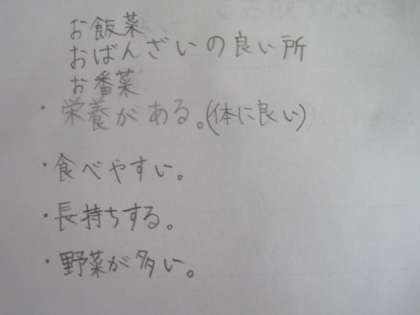 お飯菜
おばんざいの良い所
お番菜
・栄養がある。(体に良い)
・食べやすい。
・長持ちする。
・野菜が多い。